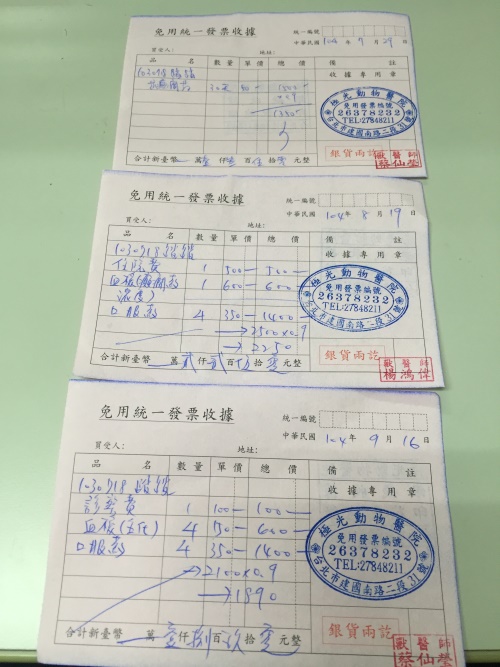 免用統一發票收據
統一編號
中華民國 104年 7月 29日
買受人： 地址：
品 名 數量 單價 總價 備 註
收據專用章
1030718
30天 50-
×0.9
1350
極光動物醫院
免用發票編號
26378232
TEL:27848211
台北市建國南路二段31號
銀貨兩訖
獸醫師
蔡仙瑩
合計新臺幣 萬壹仟參百伍拾零元整
免用統一發票收據
統一編號
中華民國 104年 8月 19日
買受人： 地址：
品 名 數量 單價 總價 備 註
收據專用章
1030718
住院費 1 500- 500-
血檢(癲癇藥 1 600- 600-
濃度)
口服藥 4 350- 1400-
→2500×0.9
→2250
極光動物醫院
免用發票編號
26378232
TEL:27848211
台北市建國南路二段31號
銀貨兩訖
獸醫師
楊鴻偉
合計新臺幣 萬貳仟貳百伍拾零元整
免用統一發票收據
統一編號
中華民國 104年 9月 16日
買受人： 地址：
品 名 數量 單價 總價 備 註
收據專用章
1030718
診察費 1 100- 100-
血檢(生化) 4 150- 600-
口服藥 4 350- 1400-
→2100×0.9
→1890
極光動物醫院
免用發票編號
26378232
TEL:27848211
台北市建國南路二段31號
銀貨兩訖
獸醫師
蔡仙瑩
合計新臺幣 萬壹仟捌百玖拾零元整